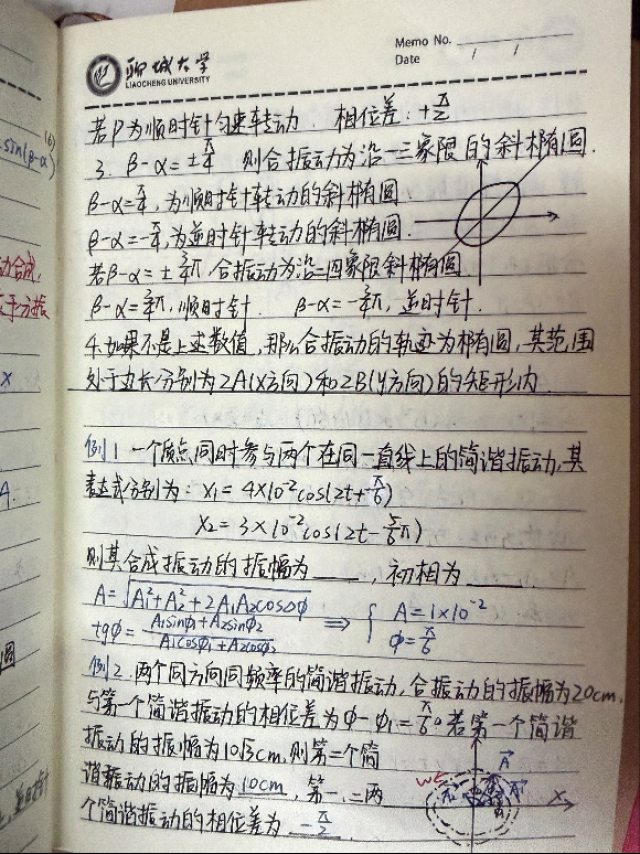 聊城大学
LIAOCHENG UNIVERSITY
Memo No.
Date / /
若P为顺时针匀速转动. 相位差: +π/2
3. β-α=±π/4 则合振动为沿一三象限的斜椭圆.
β-α=π/4, 为顺时针转动的斜椭圆.
β-α=-π/4, 为逆时针转动的斜椭圆.
若β-α=±3/4π, 合振动为沿二四象限斜椭圆.
β-α=3/4π, 顺时针. β-α=-3/4π, 逆时针.
4. 如果不是上述数值, 那么合振动的轨迹为椭圆, 其范围
处于边长分别为2A(X方向)和2B(y方向)的矩形内
例1 一个质点同时参与两个在同一直线上的简谐振动, 其
表达式分别为: X₁=4×10⁻²cos(2t+π/6)
X₂=3×10⁻²cos(2t-5/6π)
则其合成振动的振幅为____, 初相为____.
A=√(A₁²+A₂²+2A₁A₂cosΔφ)
tgφ=(A₁sinφ₁+A₂sinφ₂)/(A₁cosφ₁+A₂cosφ₂) ⇒ { A=1×10⁻² φ=π/6
例2. 两个同方向同频率的简谐振动, 合振动的振幅为20cm,
与第一个简谐振动的相位差为φ-φ₁=π/6。若第一个简谐
振动的振幅为10√3cm, 则第二个简
谐振动的振幅为 10cm, 第一、二两
个简谐振动的相位差为 -π/2.
A
X
sin(β-α)
x
A.
圆